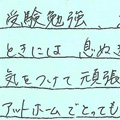 受験勉強、
ときには 息ぬき
気をつけて 頑張
アットホームでとっても